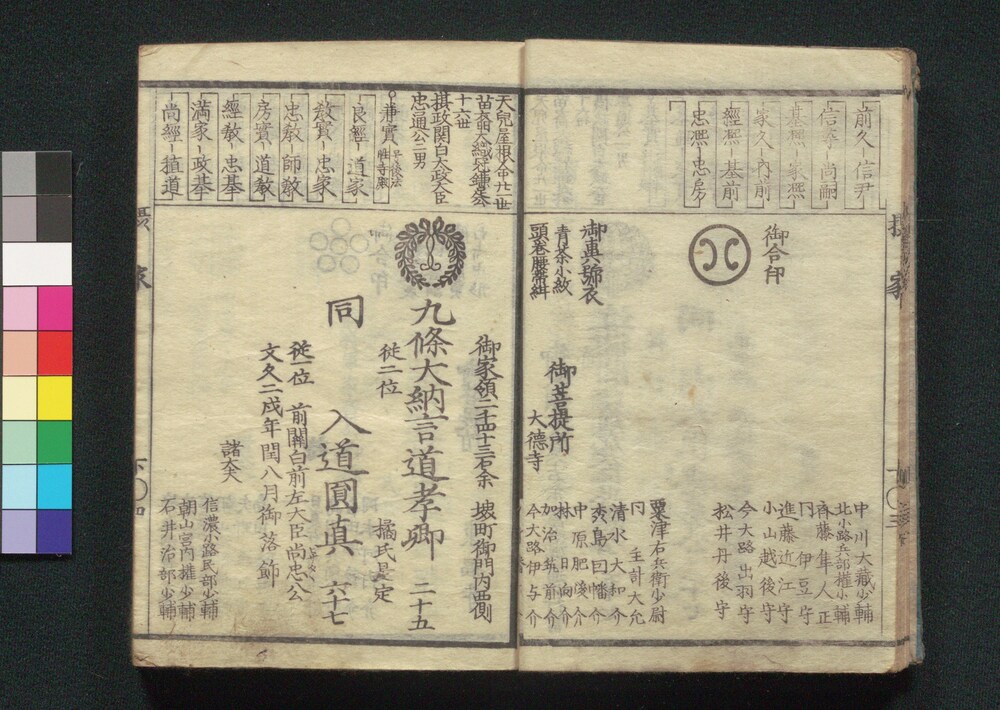 摂家
前久 信尹
信尋 尚嗣
基熈 家熈
家久 内前
經熈 基前
忠熈 忠房
御合印
中川大藏少輔
北小路兵部權少輔
斉藤隼人正
同 伊豆守
進藤近江守
小山越後守
今大路出羽守
松井丹後守
御真號衣
青茶小紋
頭巻腰蓋緋
御菩提所
大德寺
粟津右兵衛少尉
同 主計大允
清水大和介
中原肥後介
林 日向介
加治筑前介
今大路伊与介
天兒屋根命廿一世
十六世
摂政関白太政大臣
忠通公三男
兼實
良經 道家
教實 忠家
忠教 師教
房實 道教
經教 忠基
満家 政基
尚經 稙道
御家領二千四十三石余
堺町御門内西側
九條大納言道孝卿 二十五
從二位
橘氏是定
同 入道圓真 六十七
從一位 前關白前左大臣尚忠公
文久二戌年閏八月御落飾
諸大夫
信濃小路民部少輔
朝山宮内權少輔
石井治部少輔